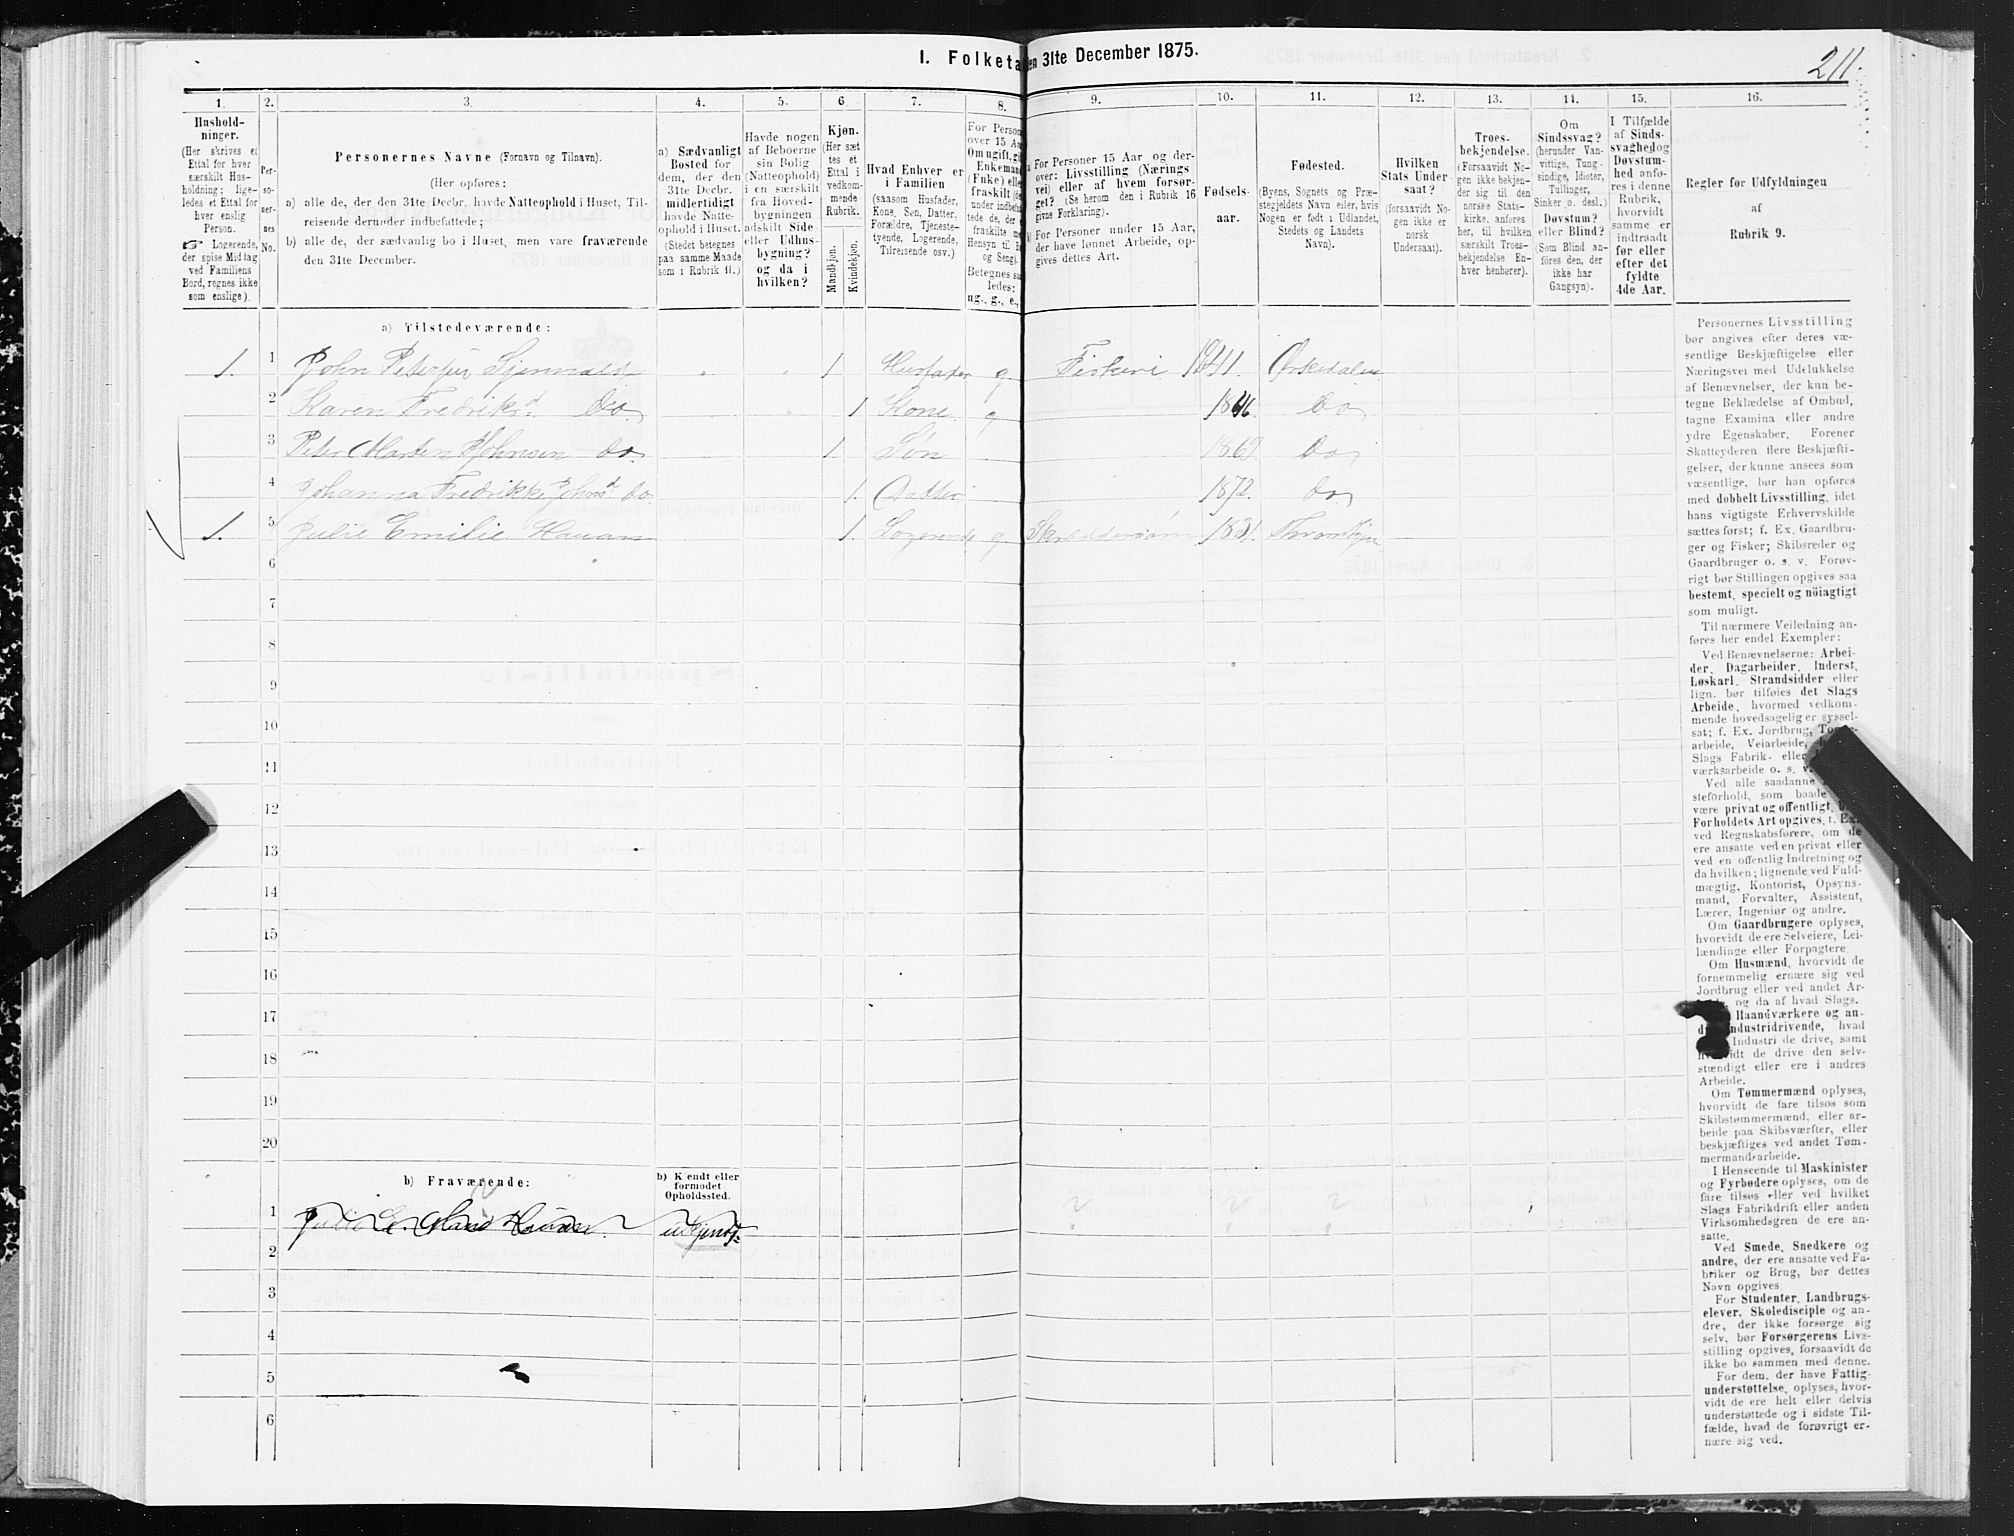 I. Folketa en 31te December 1875.
211.
1. 2. 3. 4. 5. 6. 7. 8. 9. 10. 11. 12. 13. 14. 15. 16.
Hushold-
ninger.
(Her skrives et
Ettal for hver
særskilt Hus-
holdning; lige-
ledes et Ettal for
hver enslig
Person.
☞ Logerende,
der spise Middag
ved Familiens
Bord, regnes ikke
som enslige).
Per-
so-
ner-
nes
No.
Personernes Navne (Fornavn og Tilnavn).
(Her opføres:
a) alle de, der den 31te Decbr. havde Natteophold i Huset, Til-
reisende derunder indbefattede;
b) alle de, der sædvanlig bo i Huset, men vare fraværende
den 31te December.
a) Sædvanligt
Bosted for
dem, der den
31te Decbr.
midlertidigt
havde Natte-
ophold i Huset.
(Stedet betegnes
paa samme Maade
som i Rubrik 11.)
Havde nogen
af Beboerne
sin Bolig
(Natteophold)
i en særskilt
fra Hoved-
bygningen
adskilt Side-
eller Udhus-
bygning?
og da i
hvilken?
Kjøn.
(Her sæt
tes et
Ettal i
vedkom-
mende
Rubrik.
Mandkjøn.
Kvindekjøn.
Hvad Enhver er
i Familien
(saasom Husfader,
Kone, Søn, Datter,
Forældre, Tjeneste-
tyende, Logerende,
Tilreisende osv.)
For Person
over 15 Aa
Om ugift, gi
Enkeman
(Enke) elle
fraskilt (de
under indbe
tede de, der
fraskilte m
Hensyn til B
og Seng).
Betegnes sa
ledes:
ug., g., e.,
For Personer 15 Aar og der-
over: Livsstilling (Nærings
vei) eller af hvem forsør-
get? (Se herom den i Rubrik 16
givne Forklaring).
For Personer under 15 Aar,
der have lønnet Arbeide, op-
gives dettes Art.
Fødsels-
aar.
Fødested.
(Byens, Sognets og Præ-
stegjeldets Navn eller, hvis
Nogen er født i Udlandet,
Stedets og Landets
Navn).
Hvilken
Stats Under-
saat?
(forsaavidt No-
gen ikke er
norsk
Undersaat).
Troes-
bekjendelse.
(Forsaavidt No-
gen ikke bekjen-
der sig til den
norske Stats-
kirke, anføres
her, til hvilken
særskilt Troes-
bekjendelse En-
hver henhører).
Om
Sindssvag?
(herunder Van-
vittige, Tung-
sindige, Idioter,
Tullinger,
Sinker o. desl.)
Døvstum?
eller Blind?
(Som Blind an-
føres den, der
ikke har
Gangsyn).
I Tilfælde
af Sinds-
svaghed og
Døvstum-
hed anfø-
res i denne
Rubrik,
hvorvidt
samme er
indtraadt
før eller
efter det
fyldte
4de Aar.
Regler før Udfyldningen
af
Rubrik 9.
a) Tilstedeværende:
1. 1 John Petersen 1 Husfader g Fiskeri 1841. Orkedalen
2 Karen Fredriksd. Do 1 Kone g 1846. Do
3 Peter Marten Johnsen Do 1. Søn Do
4 Johanna Fredrikke Johnsd. Do 1. Datter 1872. Do
1. 5 Julie Emilie Hauan 1. Logerende g Skræddersøm Throndhjem
6
7
8
9
10
11
12
13
14
15
16
17
18
19
20
b) Fraværende:
b) Kendt eller
formodet
Opholdssted.
1
2
3
4
5
6
Personernes Livsstilling
bør angives efter deres væ-
sentlige Beskjæftigelse eller
Næringsvei med Udelukkelse
af Benævnelser, der kun be-
tegne Beklædelse af Ombud,
tagne Examina eller andre
ydre Egenskaber. Forener
Skatteyderen flere Beskjæfti-
gelser, der kunne ansees som
væsentlige, bør han opføres
med dobbelt Livsstilling, idet
hans vigtigste Erhvervskilde
sættes først; f. Ex. Gaardbru-
ger og Fisker; Skibsreder og
Gaardbruger o. s. v. Forøv-
rigt bør Stillingen opgives saa
bestemt, specielt og nöiagtigt
som muligt.
Til nærmere Veiledning an-
føres her endel Exempler:
Ved Benævnelserne: Arbei-
der, Dagarbeider, Inderst,
Løskarl, Strandsidder eller
lign. bør tilføies det Slags
Arbeide, hvormed vedkom-
mende hovedsagelig er syssel-
sat; f. Ex. Jordbrug, Tom
arbeide, Veiarbeide,
Slags Fabrik- eller
værksarbeide o. s. v.
Ved alle saadanne
steforhold, som baade
være privat og offentligt,
Forholdets Art opgives, f. Ex.
ved Regnskabsførere, om de
ere ansatte ved en privat eller
ved en offentlig Indretning og
da hvilken; lignende ved Fuld-
mægtig, Kontorist, Opsyns-
mand, Forvalter, Assistent,
Lærer, Ingeniør og andre.
Om Gaardbrugere oplyses,
hvorvidt de ere Selveiere, Lei-
lændinge eller Forpagtere.
Om Husmænd, hvorvidt de
fornemmelig ernære sig ved
Jordbrug eller ved andet Ar-
og da af hvad Slags.
Haandværkere og an-
Industridrivende, hvad
Industri de drive, samt
hvorvidt de drive den selv-
stændigt eller ere i andres
Arbeide.
Om Tømmermænd oplyses,
hvorvidt de fare tilsøs som
Skibstømmermænd, eller ar-
beide paa Skibsværfter, eller
beskjæftiges ved andet Tøm-
mermandsarbeide.
I Henseende til Maskinister
og Fyrbødere oplyses, om de
fare tilsøs eller ved hvilket
Slags Fabrikdrift eller anden
Virksomhedsgren de ere an-
satte.
Ved Smede, Snedkere og
andre, der ere ansatte ved Fa-
briker og Brug, bør dettes
Navn opgives.
For Studenter, Landbrugs-
elever, Skoledisciple og an-
dre, der ikke forsørge sig
selv, bør Forsørgerens Livs-
stilling opgives, forsaavidt de
ikke bo sammen med denne.
For dem, der have Fattig-
understøttelse, oplyses, hvor-
vidt de ere helt eller delvis
understøttede og i sidste Til-
fælde, hvad de forøvrigt er-
nære sig ved.